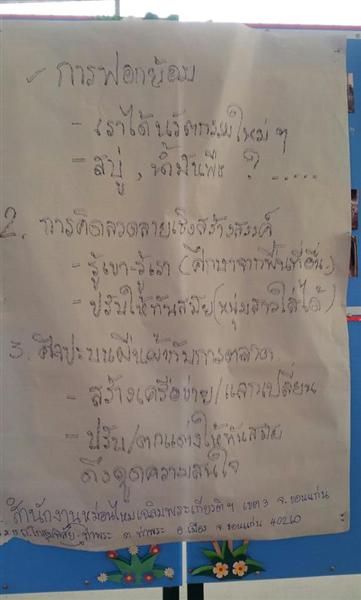 การฟอกย้อม
- เราได้นวัตกรรมใหม่ๆ
- สบู่, น้ำมันพืช ? .....
2. การคิดลวดลายเชิงสร้างสรรค์
- รู้เขา-รู้เรา (ศึกษาจากพื้นที่อื่น)
- ปรับให้ทันสมัย (หนุ่มสาวใส่ได้)
3. ศิลปะบนผืนผ้ากับการตลาด
- สร้างเครือข่าย/แลกเปลี่ยน
- ปรับ/ตกแต่งให้ทันสมัย
ดึงดูดความสนใจ
สำนักงานหม่อนไหมเฉลิมพระเกียรติฯ เขต 3 จ. ขอนแก่น
ท่าพระ ต ท่าพระ อ เมือง จ ขอนแก่น 40260